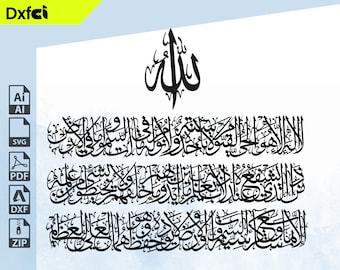 Dxfci
الله
الله لا إله إلا هو الحي القيوم لا تأخذه سنة ولا نوم له ما في السموات وما في الأرض
من ذا الذي يشفع عنده إلا بإذنه يعلم ما بين أيديهم وما خلفهم ولا يحيطون بشيء من علمه
إلا بما شاء وسع كرسيه السموات والأرض ولا يؤده حفظهما وهو العلي العظيم
Ai
AI
SVG
PDF
DXF
ZIP